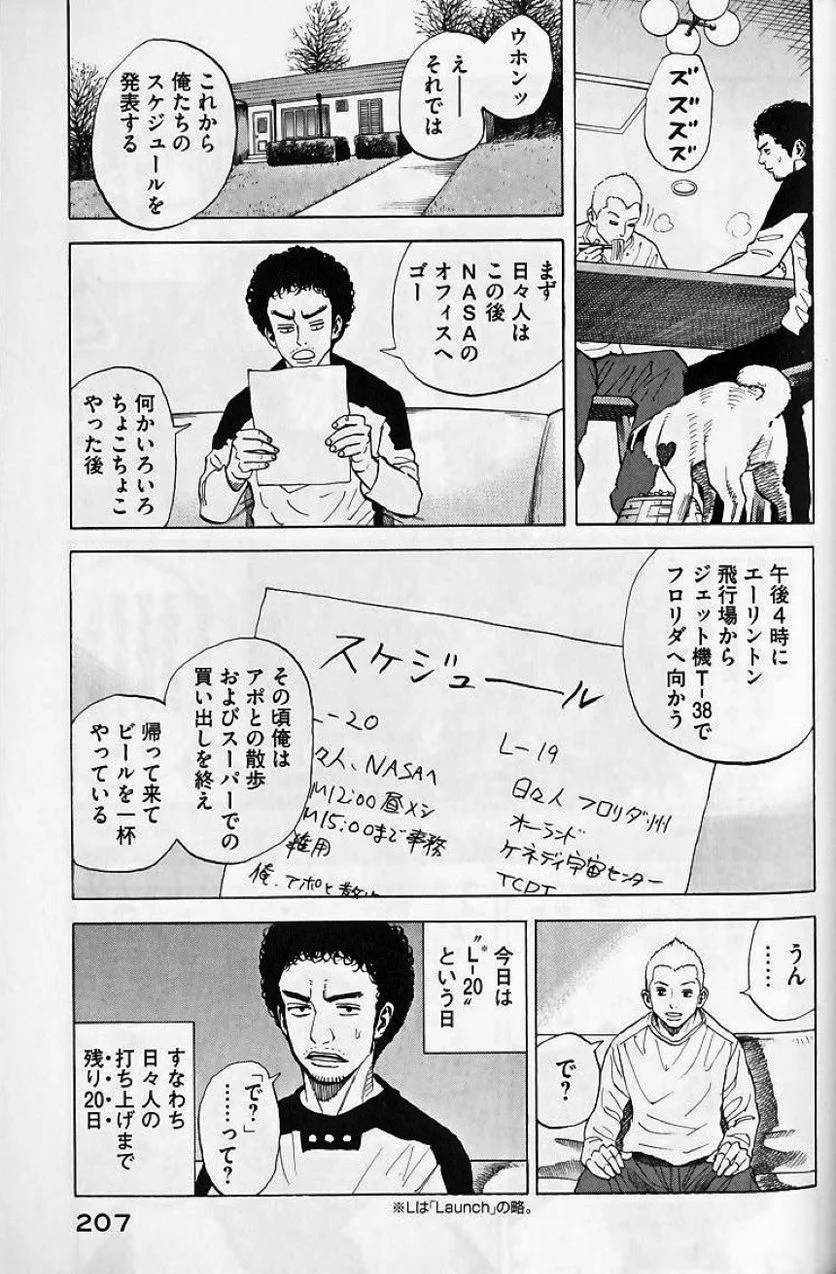 ズズズズ
ウホンッ
えー
それでは
これから
俺たちの
スケジュールを
発表する
まず
日々人は
この後
NASAの
オフィスへ
ゴー
何かいろいろ
ちょこちょこ
やった後
午後4時に
エーリントン
飛行場から
ジェット機T-38で
フロリダへ向かう
スケジュール
L-20
々人、NASAへ
12:00昼メシ
15:00まで事務
雑用
俺、アポと散
L-19
日々人 フロリダ州
オーランド
ケネディ宇宙センター
TCDT
その頃俺は
アポとの散歩
およびスーパーでの
買い出しを終え
帰って来て
ビールを一杯
やっている
うん
……
で?
今日は
〝L-20〟※
という日
「で?」
……って?
すなわち
日々人の
打ち上げまで
残り20日
※Lは「Launch」の略。
207